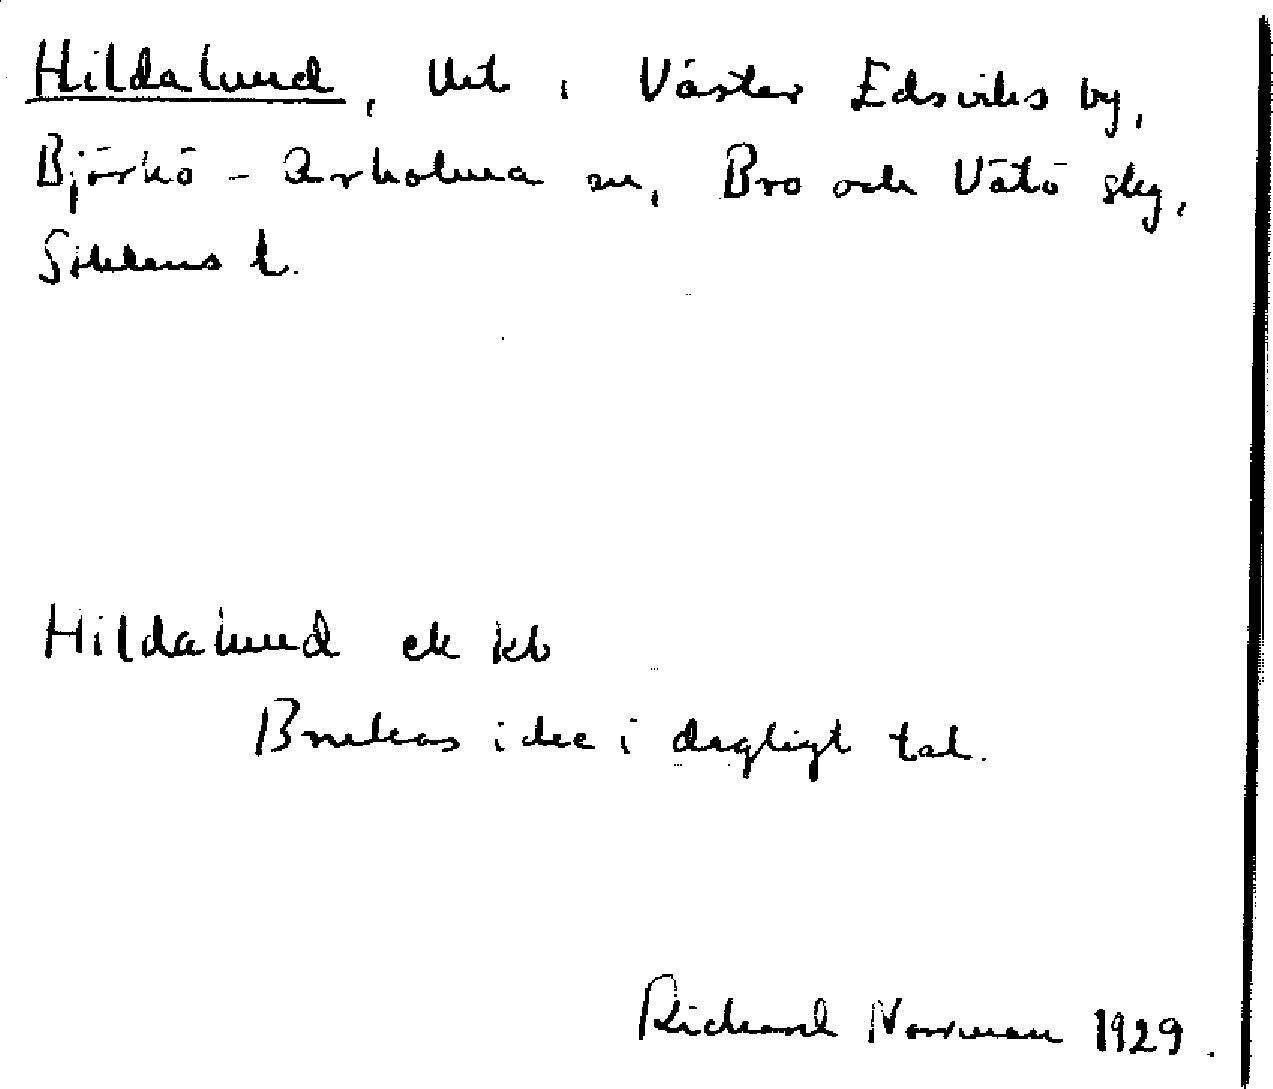 Hildalund, Utt i Väster Edsviks by,
Björkö - Arholma sn, Bro och Vätö skg,
Sjuhens h.
Hildalund ek kb
Brukas icke i dagligt tal.
Richard Norrman 1929.